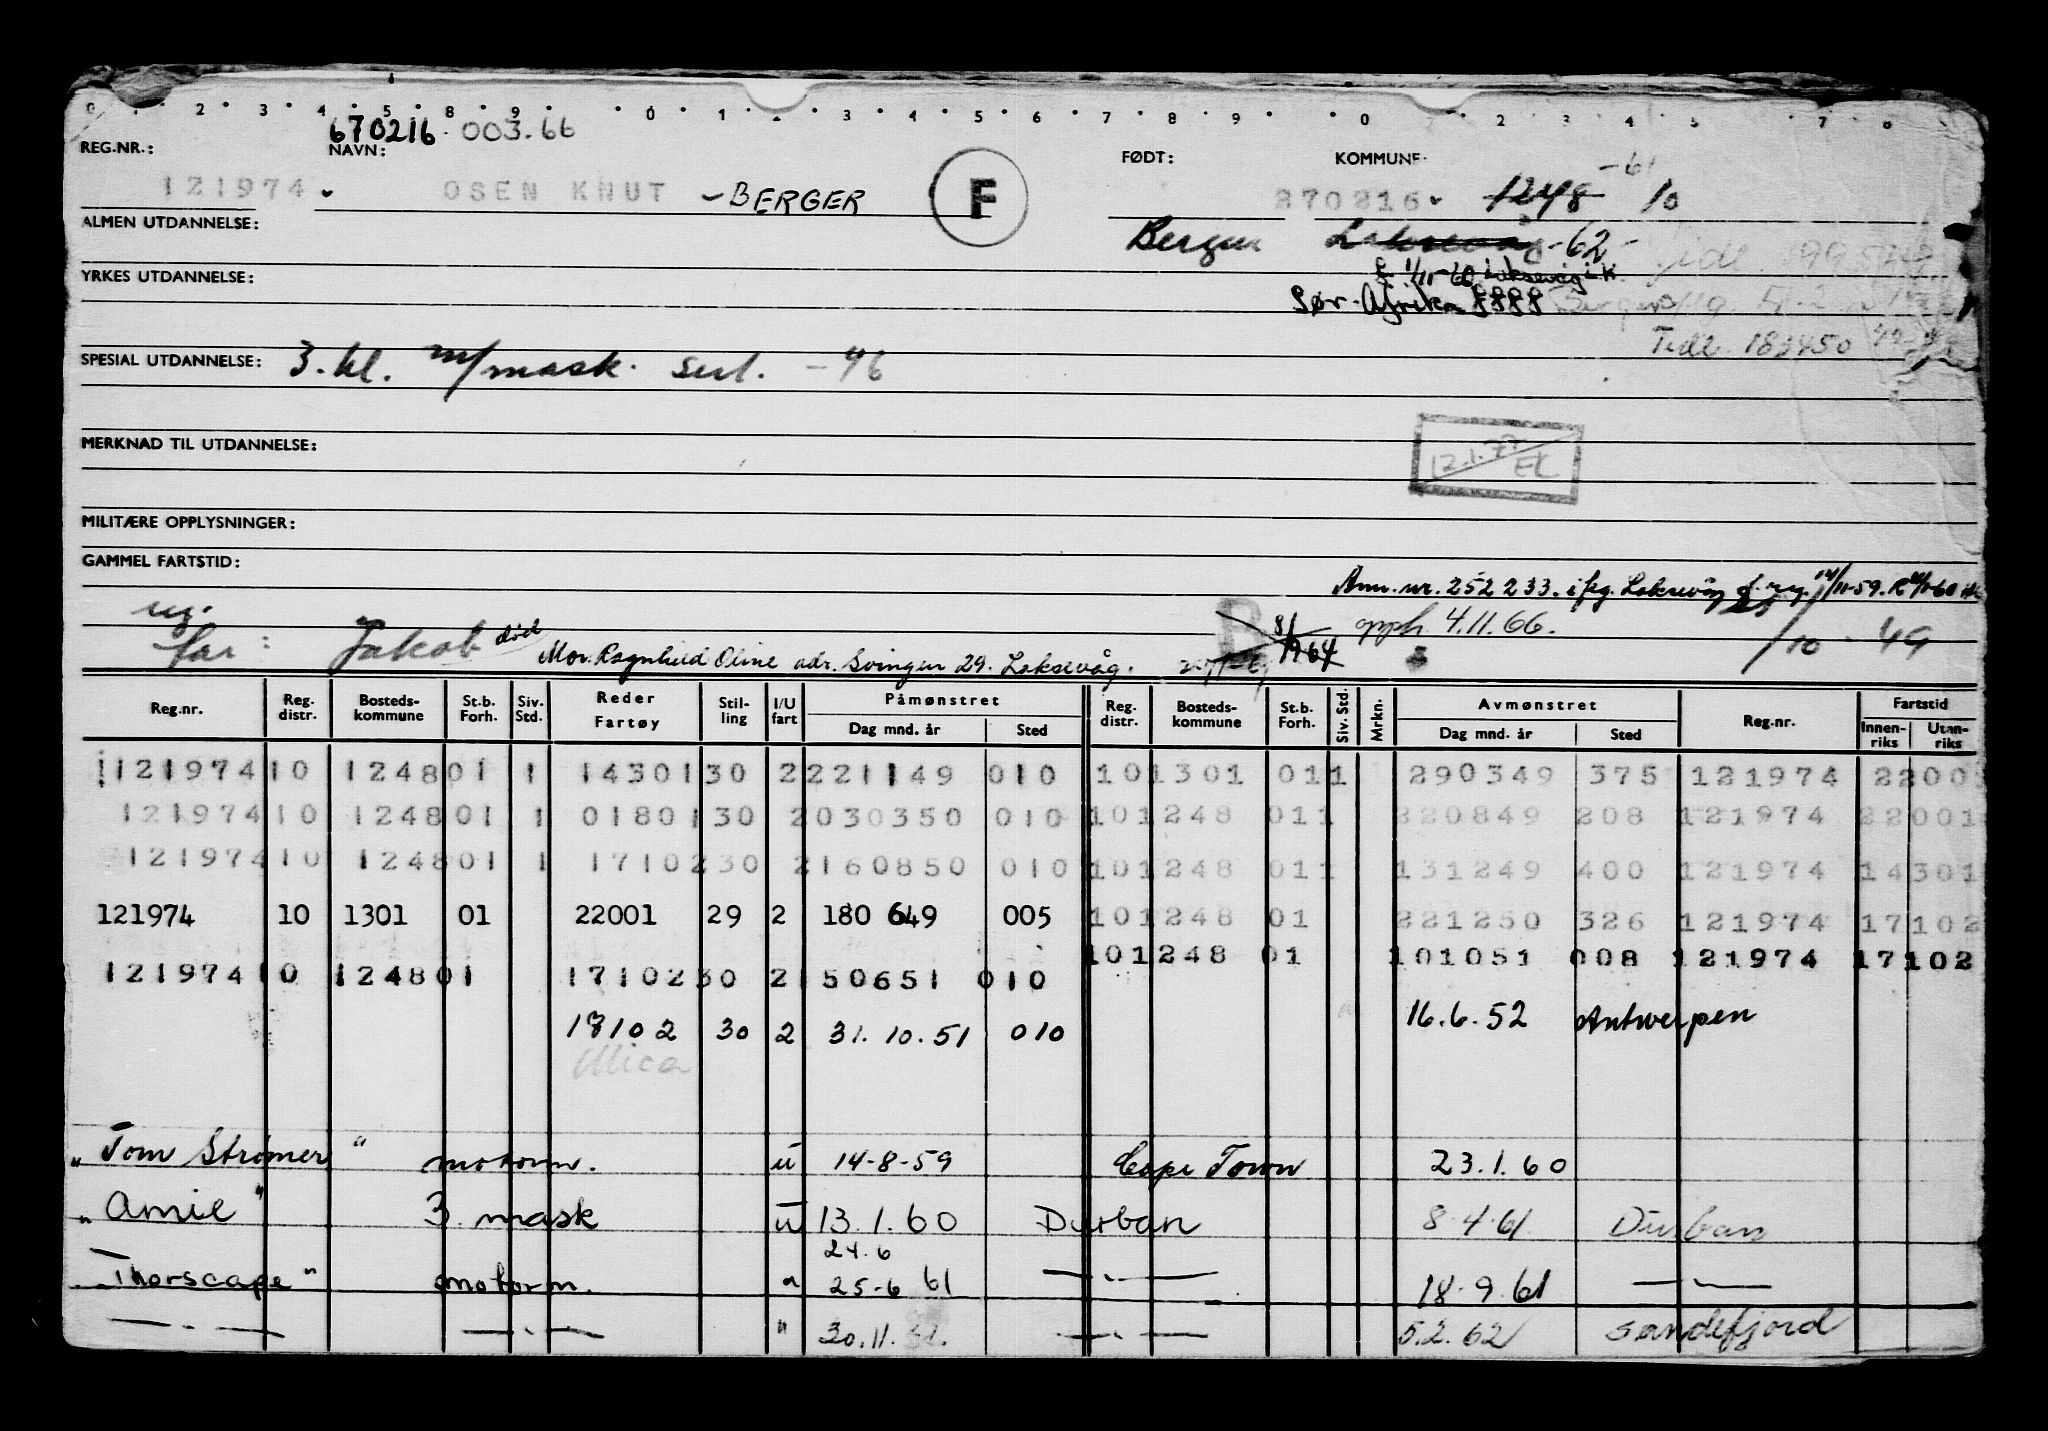 0 1 2 3 4 5 8 9 0 1 2 3 4 5 6 7 8 9 0 2 3 4 5 7 8
670216 003.66
REG.NR.: NAVN: FØDT: KOMMUNE:
-61
121974 OSEN KNUT -BERGER F 270216 1248 10
ALMEN UTDANNELSE: Bergen Laksevåg -62-
YRKES UTDANNELSE: 1/11-60 Laksevåg
Sør-Afrika
Tidl. 183450
SPESIAL UTDANNELSE: 3. kl. m/mask. sert. -46
12.1.77 EK
MERKNAD TIL UTDANNELSE:
MILITÆRE OPPLYSNINGER:
GAMMEL FARTSTID:
Ann. nr. 252233. i flg. Laksevåg 11-59.
ug. 8/ 1964 opph. 4.11.66.
far: Jakob død Mor. Ragnhild Oline adr. Svingen 29. Laksevåg. /10 - 49
Reg.nr. Reg. distr. Bosteds-kommune St.b. Forh. Siv. Std. Reder Fartøy Stil-ling I/U fart Påmønstret Dag mnd. år Sted Reg. distr. Bosteds-kommune St.b. Forh. Siv. Std. Mrkn. Avmønstret Dag mnd. år Sted Reg.nr. Fartstid Innen-riks Utan-riks
121974 10 1248 01 1 14301 30 2 221149 010 10 1301 01 1 290349 375 121974 2200
121974 10 1248 01 1 01801 30 2 030350 010 10 1248 01 1 220849 208 121974 22001
121974 10 1248 01 1 17102 30 2 160850 010 10 1248 01 1 131249 400 121974 14301
121974 10 1301 01 22001 29 2 180649 005 10 1248 01 221250 326 121974 17102
121974 10 1248 01 17102 30 2 150651 010 10 1248 01 101051 008 121974 17102
17102 30 2 31.10.51 010 16.6.52 Antwerpen
Mica
"Tom Strømer" motorm. u 14-8-59 Cape Town 23.1.60
"Amie" 3 mask u 13.1.60 Durban 8.4.61 Durban
24.6
"Thorscape" motorm. " 25-6 61 —"— 18.9.61 —"—
—"— —"— " 30.11.61. —"— 5.2.62 Sandefjord